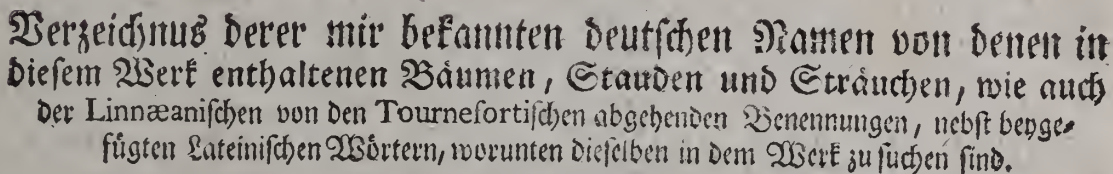 Verzeichnus derer mir bekannten deutschen Namen von denen in
diesem Werk enthaltenen Bäumen, Stauden und Sträuchen, wie auch
der Linnæanischen von den Tournefortischen abgehenden Benennungen, nebst beyge-
fügten Lateinischen Wörtern, worunten dieselben in dem Werk zu suchen sind.